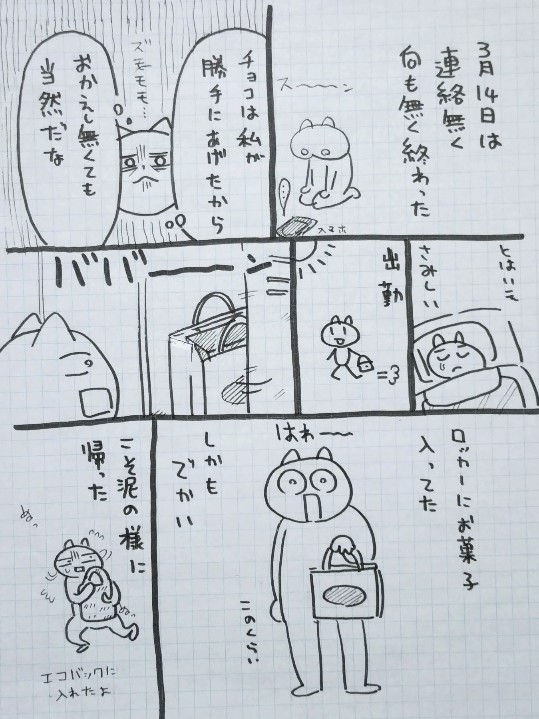 3月14日は
連絡無く
何も無く終わった
スーーーン
スマホ
チョコは私が
勝手にあげたから
おかえし無くても
当然だな
ズモモモ…
とはいえ
さみしい
出勤
ババーーン
ロッカーにお菓子
入ってた
はわ〜〜
このくらい
しかも
でかい
こそ泥の様に
帰った
エコバックに
入れたよ